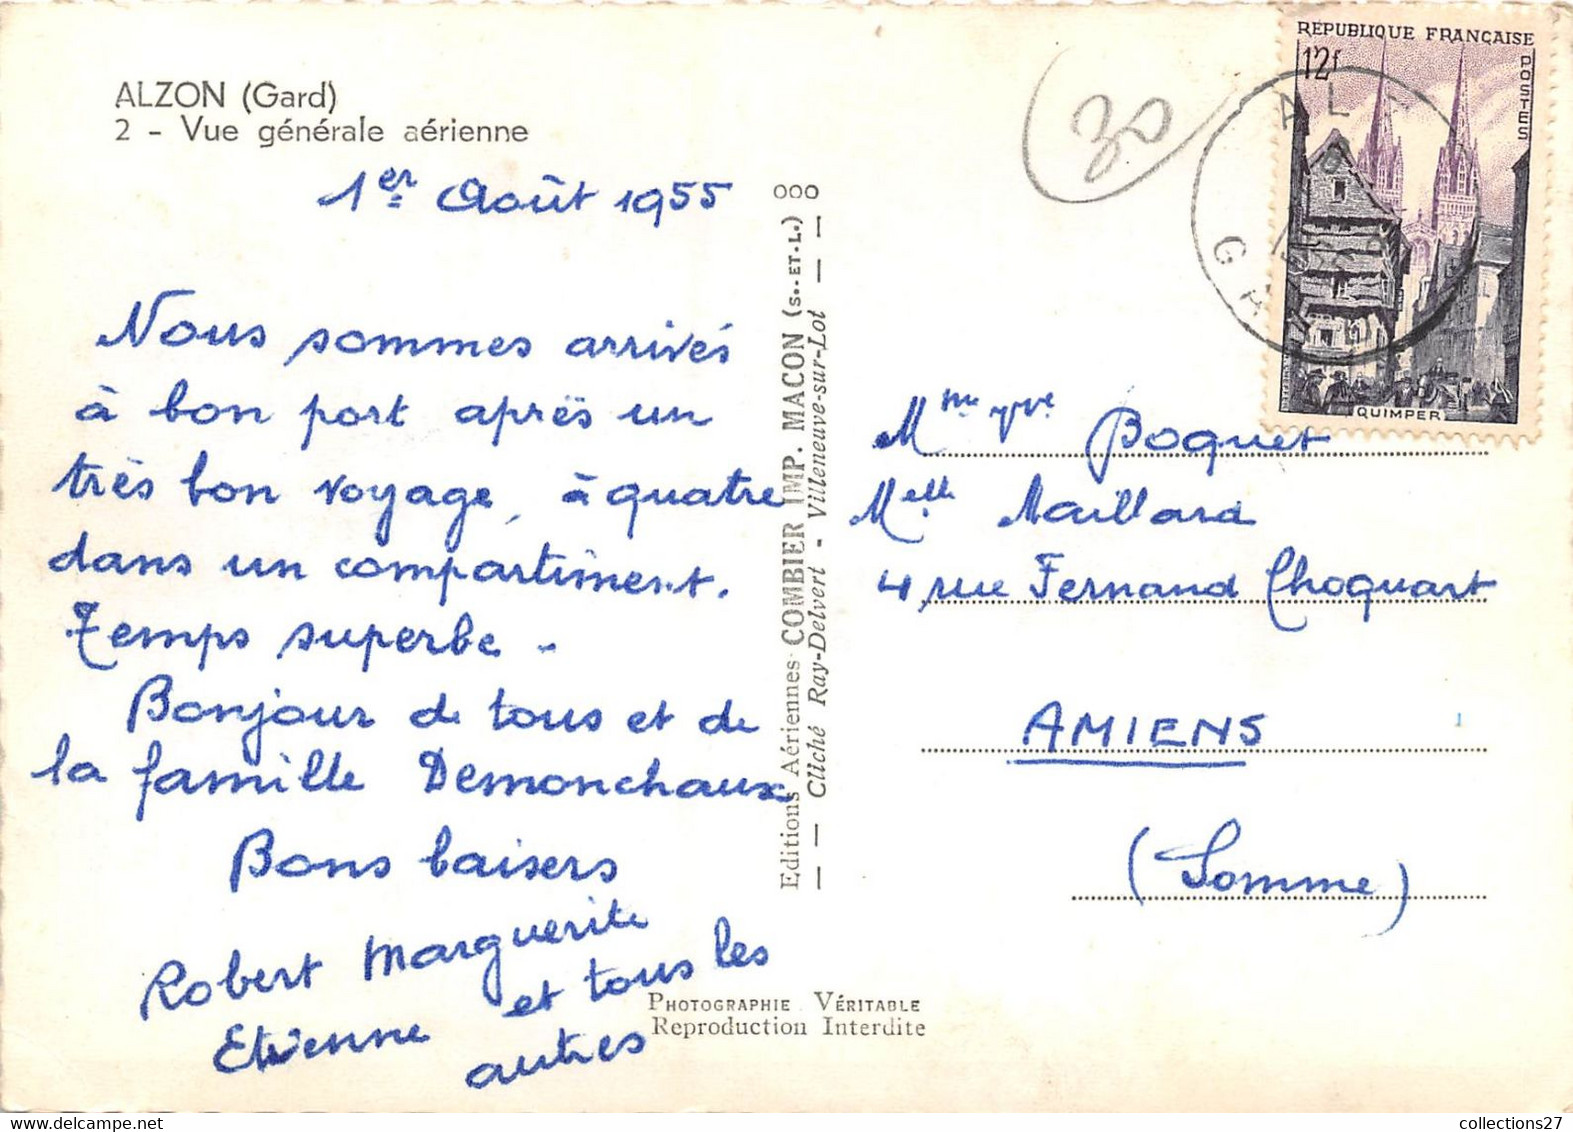 ALZON (Gard)
2 - Vue générale aérienne
1er Août 1955
Nous sommes arrivés
à bon port après un
très bon voyage, à quatre
dans un compartiment.
Temps superbe -
Bonjour de tous et de
la famille Demonchaux
Bons baisers
Robert Marguerite
Etienne et tous les
autres
Editions Aériennes COMBIER IMP. MACON (S.-ET-L.) 000
— Cliché Ray-Delvert - Villeneuve-sur-Lot — —
PHOTOGRAPHIE VÉRITABLE
Reproduction Interdite
30
RÉPUBLIQUE FRANÇAISE
12f
POSTES
QUIMPER
GARD
Mme Vve Boquet
Melle Maillard
4, rue Fernand Choquart
AMIENS
(Somme)
collections27